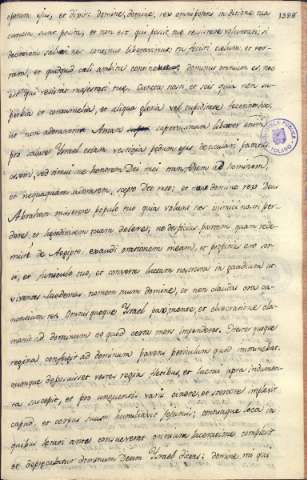 operum ejus, et dixit: domine, domine, rex omnipotens in ditione tua
cuncta sunt posita, et non est, qui possit tuæ resistere voluntati; si
decreveris salvare nos continuo liberabimur: tu fecisti cælum, et ter-
ram, et quidquid cæli ambitu continetur, dominus omnium es, nec
est qui resistat majestati tuæ. Cuncta nosti, et scis quia non su-
perbia et contumelia, et aliqua gloriæ vel cupiditate fecerim hoc,
ut non adorarem Aman superbissimum libenter enim
pro salute Israel etiam vestigia pedum ejus deosculari paratus
essem, sed timui ne honorem Dei mei transferrem ad hominem,
et nequaquam adorarem, excepto Deo meo; et nunc domine rex Deus
Abraham miserere populi tui quia volunt nos inimici nostri per-
dere, et hæreditatem tuam delere; ne despicias partem tuam quam rede-
misti de Aegipto. exaudi orationem meam, et propitius esto sor-
ti, et funiculo tuo, et converte luctum nostrum in gaudium ut
viventes laudemus nomen tuum domine, et non claudas ora ca-
nentium te. Omnis quoque Israel pari mente, et obsecratione cla-
mavit ad dominum eo quod certa mors impenderet. Ester quoque
regina confugit ad dominum pavens periculum quod imminebat.
cumque deposuisset vestes regias fletibus, et luctui apta indumen-
ta suscepit, et pro unguentis variis cinere, et stercore implevit
caput, et corpus suum humiliavit jejuniis; omniaque loca in
quibus antea lætari consueverat crinium laceratione complevit
et deprecabatur dominum Deum Israel dicens: domine mi qui